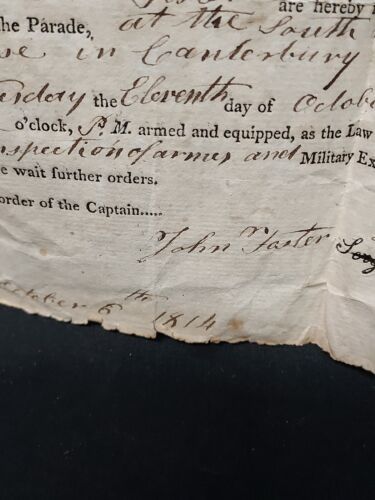 are hereby
the Parade, at the South
in Canterbury
the Eleventh day of Octob
o'clock, P. M. armed and equipped, as the Law
nspection of armes and Military Ex
e wait further orders.
order of the Captain.....
John Foster
October 6th 1814